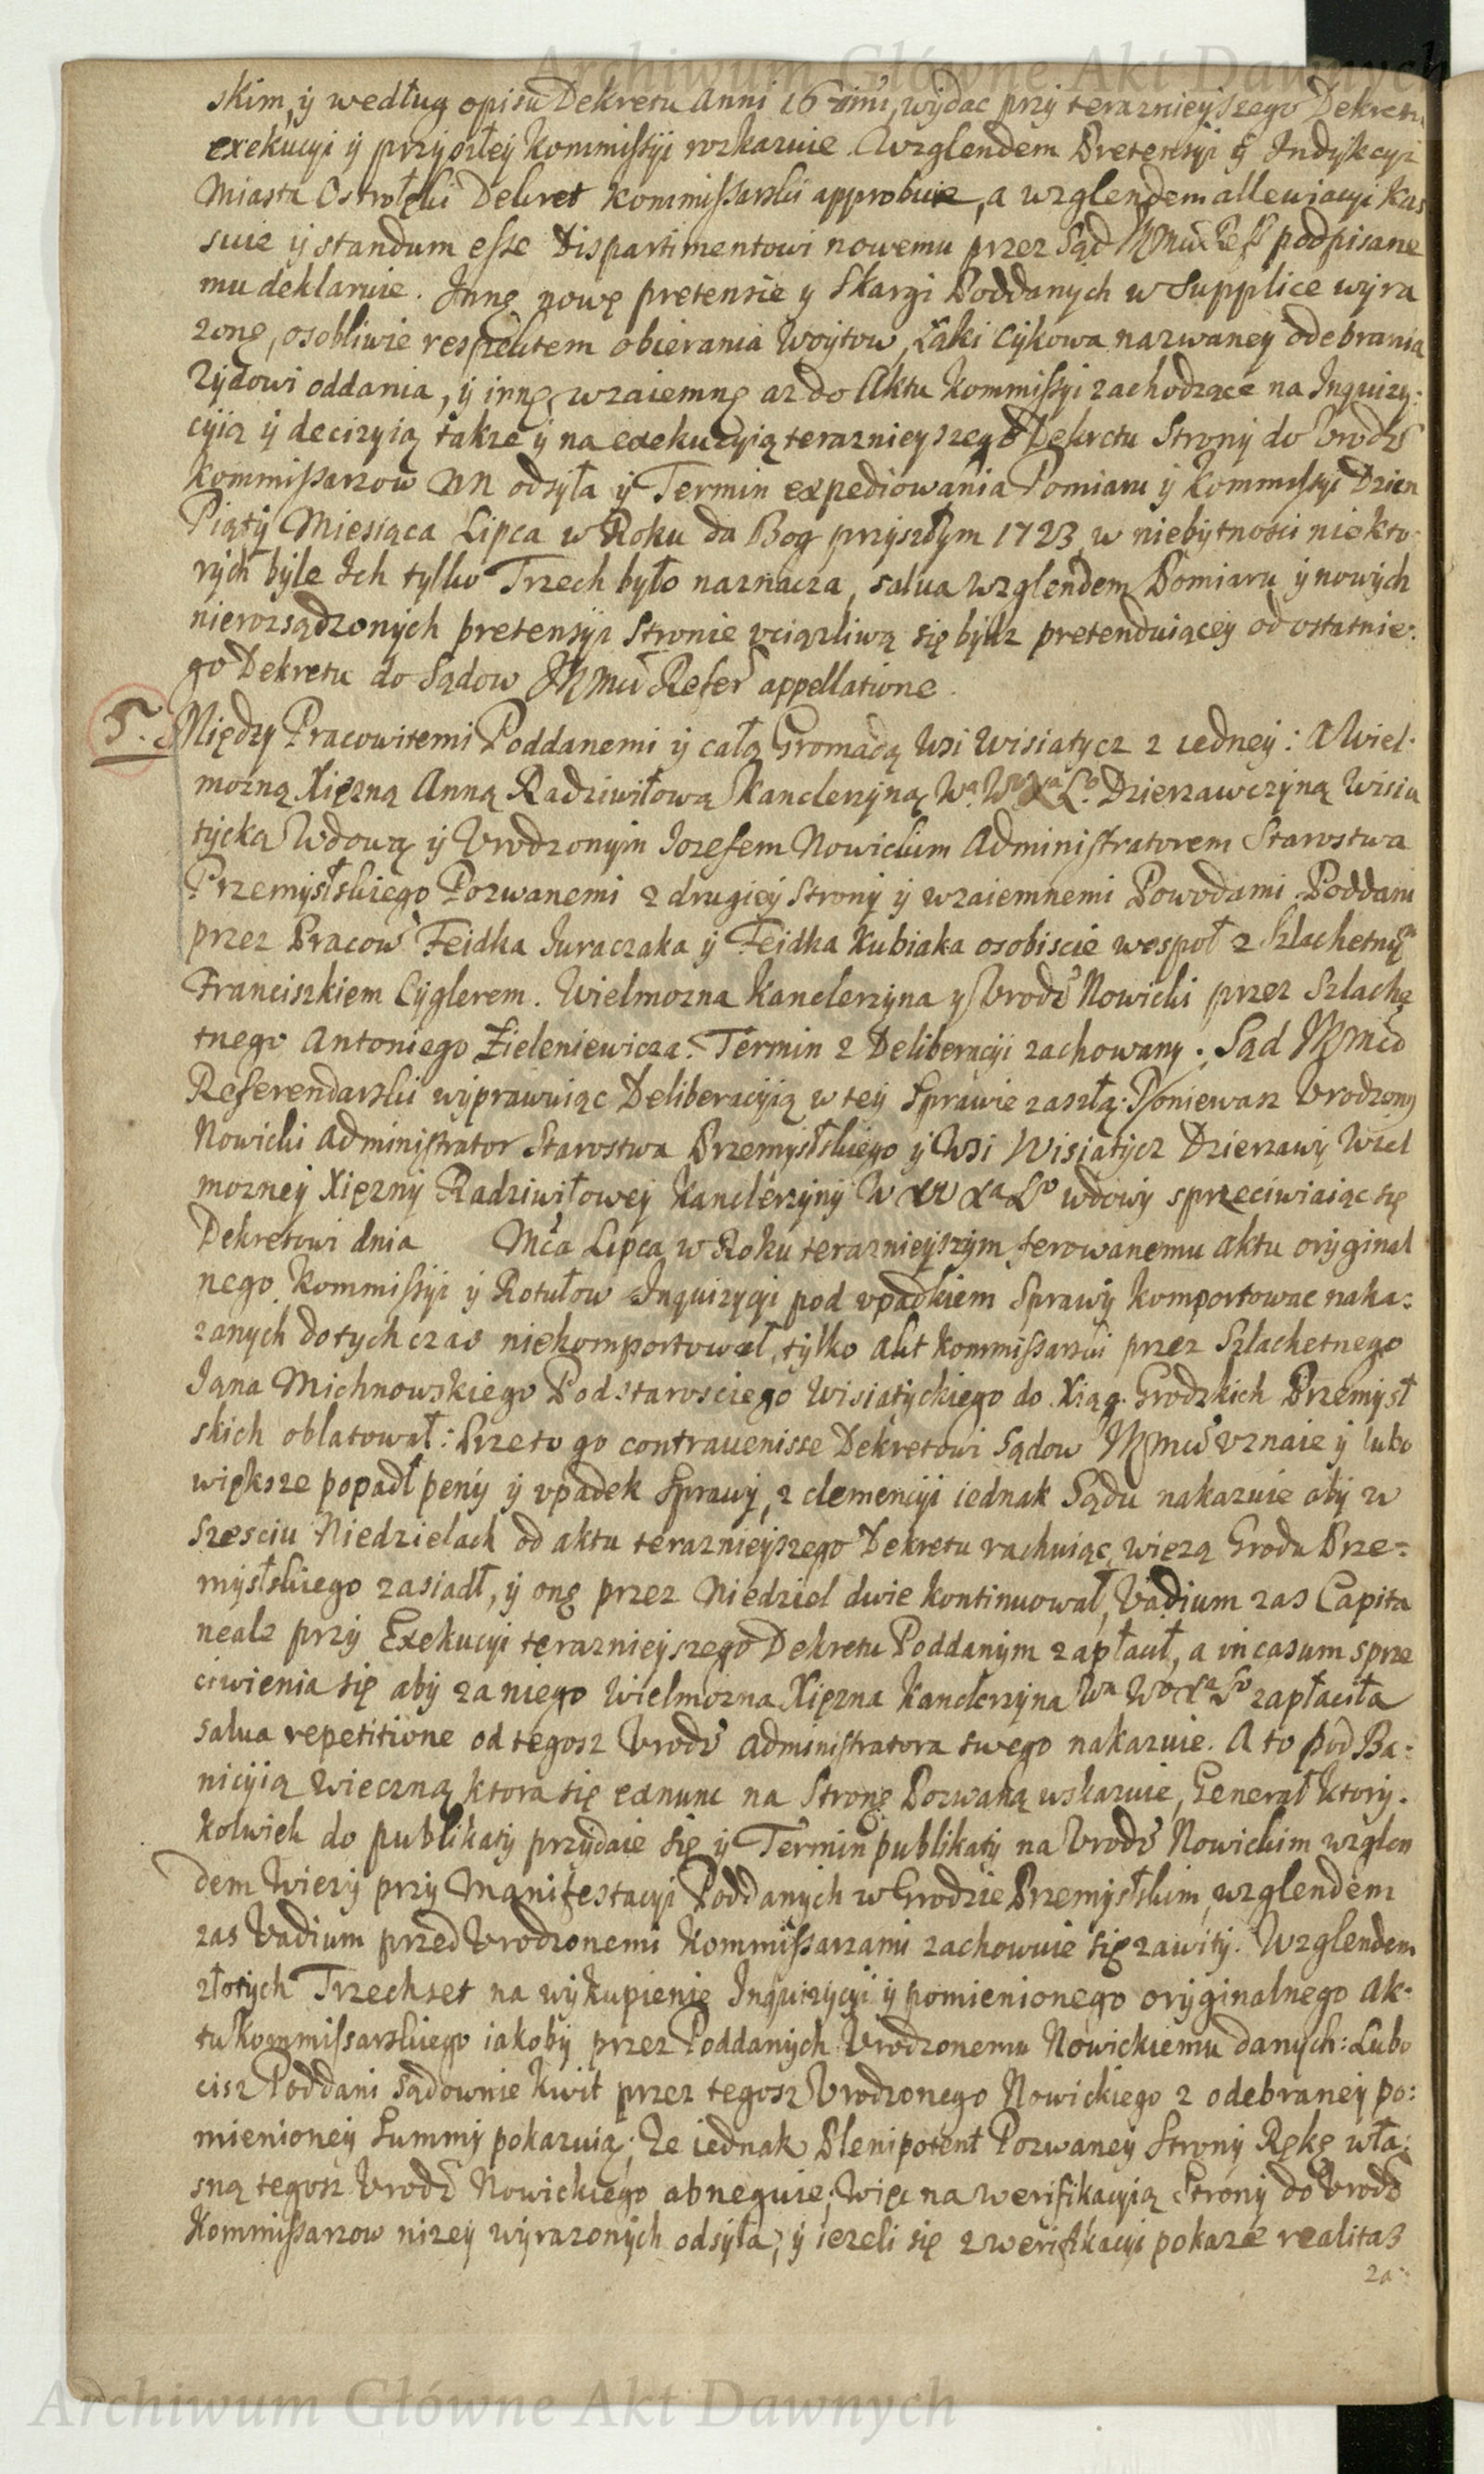 Archiwum Główne Akt Dawnych
skim, y według opisu Dekretu Anni wydac przy teraznieyszego Dekretu
exekucyi y przyszłey Kommissyi rozkazuie. Wzglendem Pretensyi y Indykcyi
Miasta Ostrołęki Dekret Kommissarski approbuie, a wzglendem allewiacyi Kas
suie y standum esse Dispartimentowi nowemu przez Sąd podpisane
mu deklaruie. Innę nowę pretensie y Skargi Poddanych w Supplice wyra
zonę, osobliwie respektem obierania Woytow, Łąki Cykowa nazwaney odebrania
Zydowi oddania, y innę wzaiemnę az do Aktu Kommissyi zachodzące na Inquizy:
cyią y decizyią takze y na exekucyią teraznieyszego Dekretu Strony do Vrodz
Kommissarzow NN odsyła y Termin expediowania Pomiaru y Kommissyi Dzien
Piąty Miesiąca Lipca w Roku da Bog przyszłym 1723, w niebytnosci niekto
rych byle Ich tylko Trzech było naznacza, salua wzglendem Pomiaru y nowych
nierozsądzonych pretensyi Stronie vciązliwą się bydz pretenduiącey od ostatnie:
go Dekretu do Sądow JKMci Refer appellatione.
5. Między Pracowitemi Poddanemi y całą Gromadą Wsi Wisiatycz z iedney: A Wiel:
mozną Xięzną Anną Radziwiłową Kanclerzyną Wa Wo Xa Lo Dzierzawczyną Wisia
tycką Wdową y Vrodzonym Iozefem Nowickim Administratorem Starostwa
Przemyslskiego Pozwanemi z drugiey Strony y wzaiemnemi Powodami Poddani
przez Pracow Feidka Iuraczaka y Feidka Kubiaka osobiscie wespoł z Szlachetnym
Franciszkiem Cyglerem. Wielmozna Kanclerzyna y Vrodz Nowicki przez Szlache
tnego Antoniego Zieleniewicza. Termin z Deliberacyi zachowany. Sąd JKMci
Referendarski wyprawuiąc Deliberacyią w tey Sprawie zaszłą: Poniewasz Vrodzony
Nowicki Administrator Starostwa Przemyslskiego y Wsi Wisiatycz Dzierzawy Wiel
mozney Xięzny Radziwiłowey Kanclerzyny W W Xa Lo wdowy sprzeciwiaiąc się
Dekretowi dnia Mca Lipca w Roku teraznieyszym ferowanemu aktu oryginal
nego Kommissyi y Rotułow Inquizycyi pod vpadkiem Sprawy komportowac naka:
zanych dotychczas niekomportował, tylko akt Kommissarski przez Szlachetnego
Iana Michnowskiego Podstarosciego Wisiatyckiego do Xiąg Grodzkich Przemysl
skich oblatował: Przeto go contrauenisse Dekretowi Sądow JKMci vznaie y lubo
większe popadł peny y vpadek Sprawy, z clemencyi iednak Sądu nakazuie aby w
Szesciu Niedzielach od aktu teraznieyszego Dekretu rachuiąc, wiezą Grodu Prze=
myslskiego zasiadł, y onę przez Niedziel dwie kontinuował, Vadium zas Capita
neale przy Exekucyi teraznieyszego Dekretu Poddanym zapłacił, a in casum sprze
ciwienia się aby za niego Wielmozna Xięzna Kanclerzyna Wa Wo Xa Lo zapłaciła
salua repetitione od tegosz Vrodz Administratora swego nakazuie. A to pod Ba:
nicyią wieczną, ktora się exnunc na Stronę Pozwaną wskazuie, Generał ktory:
kolwiek do publikaty przydaie się y Termin publikaty na Vrodz Nowickim wzglen
dem wiezy przy Manifestacyi Poddanych w Grodzie Przemyslskim, wzglendem
zas Vadium przed Vrodzonemi Kommissarzami zachowuie się zawity. Wzglendem
złotych Trzechset na wykupienie Inquizycyi y pomienionego oryginalnego Ak:
tu Kommissarskiego iakoby przez Poddanych Vrodzonemu Nowickiemu danych: Lubo
cisz Poddani Sądownie kwit przez tegosz Vrodzonego Nowickiego z odebraney po:
mienioney Summy pokazuią; Ze iednak Plenipotent Pozwaney Strony Rękę wła:
sną tegosz Vrodz Nowickiego abneguie; Więc na werifikacyią Strony do Vrodz
Kommissarzow nizey wyrazonych odsyła; y iezeli się z werifikacyi pokaze realitas
za:
Archiwum Główne Akt Dawnych